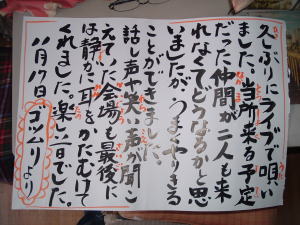 久しぶりにライブで唄い
ました。当所来る予定
だった仲間が二人も来
れなくてどうなるかと思
いましたが、うまくやりきる
ことができました。
話し声や笑い声が聞こ
えていた会場も最後に
は静かに耳をかたむけて
くれました。楽しい一日でした。
11月17日 ゴツムリより